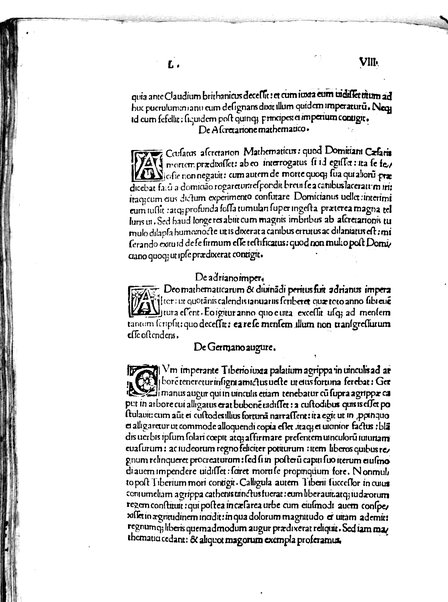 L. VIII.
quia ante Claudium brithanicus decessit: et cum iuxta eum uidisset titum ad
huc puerulum manu eum designans dixit illum quidem imperaturū. Neq;
id cum fefellit: siquidem post quinq; principes ei imperium contigit.
De Ascretarione mathematico.
ACcusatus ascretarion Mathematicus: quod Domitiani Cæsaris
mortem prædixisset: ab eo interrogatus si id egisset: ita se fe,
cisse non negauit: cum autem de morte quoq; sua quid alioru3 præ
dicebat fa.ū a domitiāo rogaret respondit breui se a canibus laceratum iri
itaq; cum eius dictum experimento confutare Domicianus uellet: interimi
eum iussit: atq; profunda fossa tumulari super ingesta præterea magna tel
luris ui. Sed haud longe res abiit cum magnis imbribus ab ascretarionis tu
mulo dilapsa humo nocte ut is dixerat a canibus erutus ac dilaniatus est: mi
serando exitu id de se firmum esse testificatus: quod non multo post Domi/
ciano quoq; ut ipse prædixerat contigit.
De adriano imper.
ADeo mathematicarum & diuinādi peritus fuit adrianus impera
liter: ut quotānis calendis ianuariis scriberet quæ teto anno sibi euē
tura essent. Eo igitur anno quo e uita excessit usq; ad mensem
tantum scripsit: quo decessit: ea re se mensem illum non transgressurum
esse ostendens.
De Germano augure.
CVm imperante Tiberio iuxa palatium agrippa in uinculis ad ar
borē teneretur insigni amictus ueste ut eius fortuna ferebat: Ger
manus augur qui in uinculis etiam tenebatur cū supra agrippæ ca
put in arbore cui alligatus erat bubonē uidisset: a custodibus quis is esset po
stulauit: cum aūt ei custodes illius fortunā narrassent: ita egit ut in ppinquo
ei alligaretur ut commode alloquendi copia esset. itaq; ei uicinior factus: blā
dis uerbis ipsum solari cœpit atq; affirmare presentem uinculorū iniuriam
euasurum: ac iudæorum regno feliciter potiturum: item liberos quibus re
gnum relinqueret procreaturum: sed si in posterū capiti suo iterum eiusmo
di auem impendere uidisset: sciret mortē se propinquā fore. Non mul
to post Tiberium mori contigit. Caligula autem Tiberii successor in cuius
contumelum agrippa cathenis uinctus fuerat: eum liberauit. atq; iudæorum
regem constituit: qui postea in cæsarea urbe cum eiusmodi auem conspe,
xisset in ægritudinem incidit: in qua dolorum magnitudo ei uitam ademit:
regnumq; liberis quemadmodum augur prædixerat reliquit. Sed iam ma,
thematici cedant: & aliquot magorum exempla proferamus.